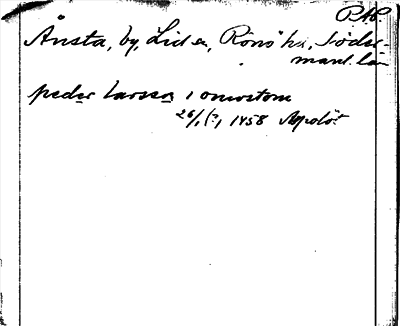 P.A.
Ånsta, by, Lids, Rönö hd, Söder-
manl. län
peder larsson i onustom
26/1 (?) 1458